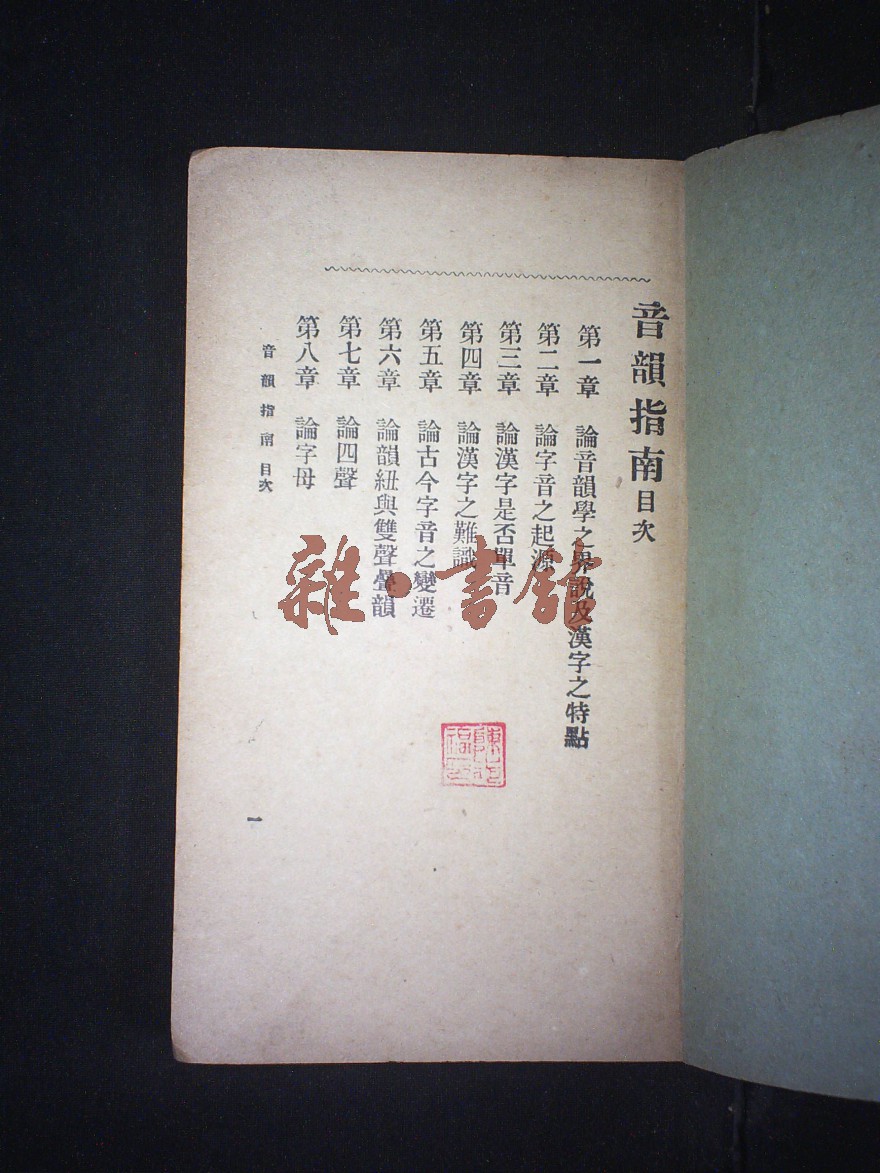 音韻指南目次
第一章　論音韻學之界說及漢字之特點
第二章　論字音之起源
第三章　論漢字是否單音
第四章　論漢字之難識
第五章　論古今字音之變遷
第六章　論韻紐與雙聲疊韻
第七章　論四聲
第八章　論字母
音韻指南　目次
一
雜·書館